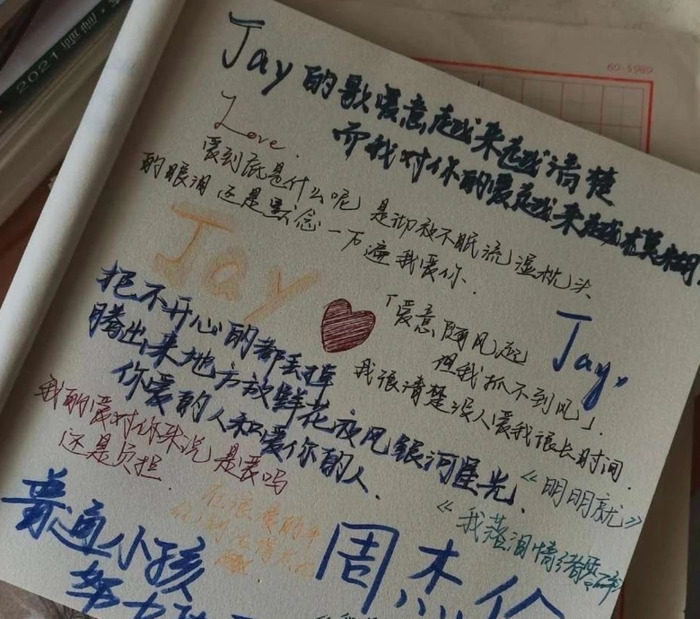 2021
60-5989
Jay的歌爱意越来越清楚
而我对你的爱越来越模糊
Love.
爱到底是什么呢 是彻夜不眠流湿枕头
的眼泪 还是默念一万遍我爱你.
Jay
「爱意随风起
但我抓不到风」.
Jay,
把不开心的都丢掉
腾出来地方放鲜花夜风银河星光、
你爱的人和爱你的人.
我很清楚没人爱我很长时间.
我的爱对你来说是爱吗
还是负担.
《明明就》
《我落泪情绪零碎
普通小孩
周杰伦
努力